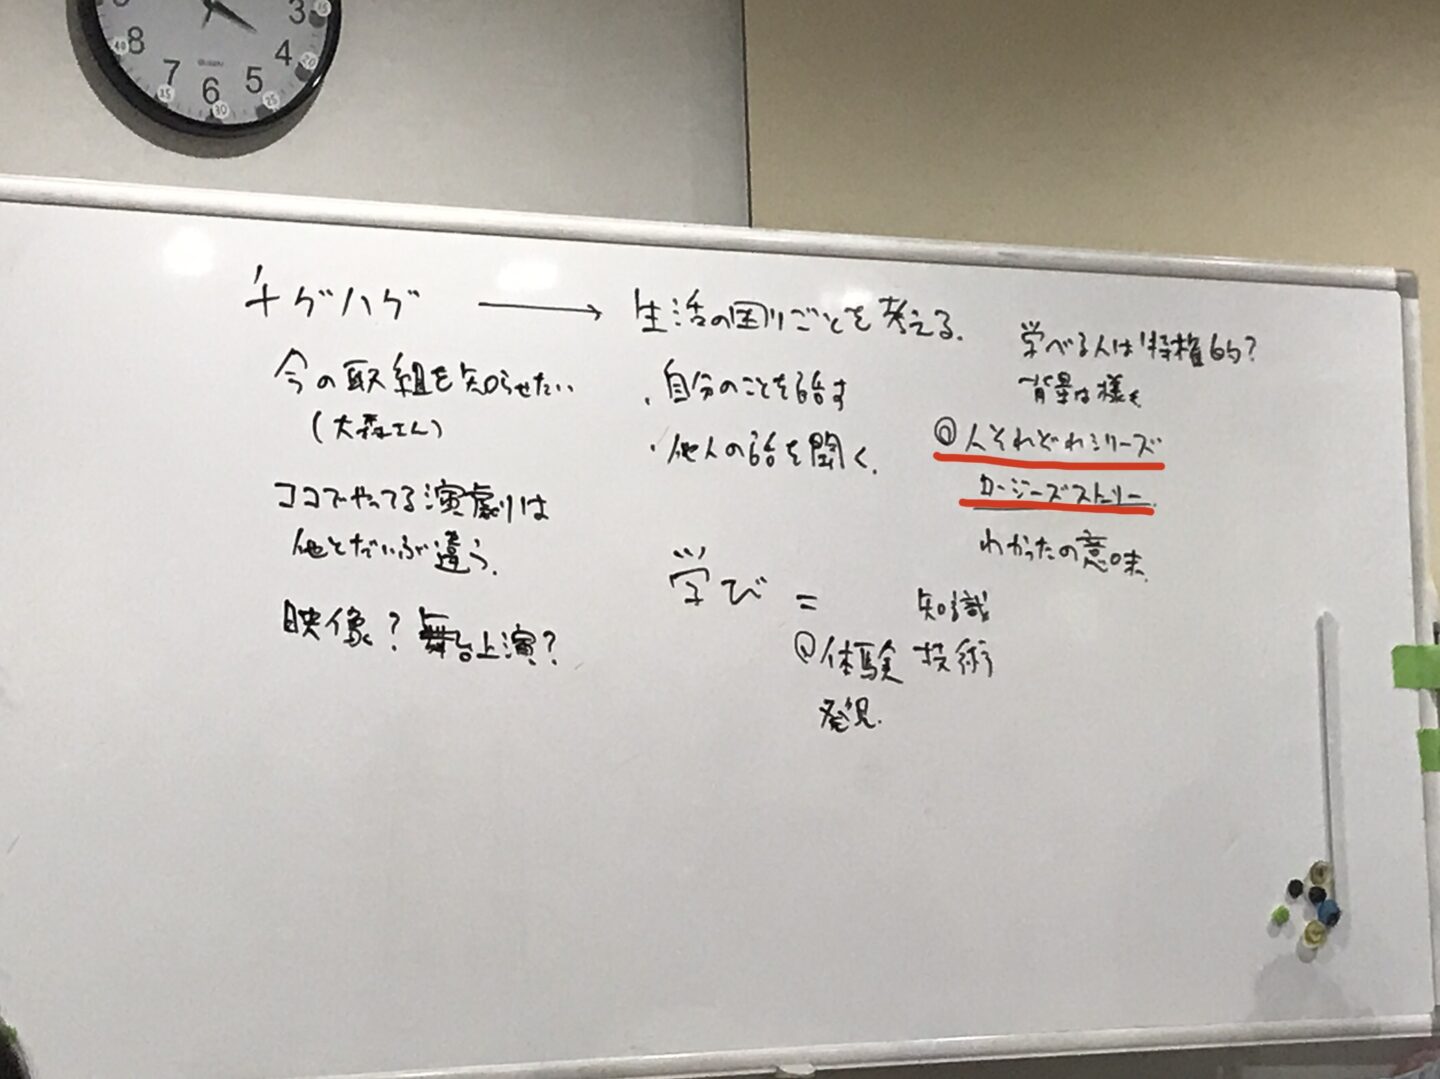 3
4
5
6
7
8
チグハグ → 生活の困りごとを考える.
今の取組を知らせたい
(大森さん)
ココでやってる演劇は
他とだいぶ違う.
映像? 舞台上演?
・自分のことを話す
・他人の話を聞く.
学べる人は特権的?
背景は様々
◎人それぞれシリーズ
ロージーズストーリー
わかったの意味
学び = 知識
◎体験 技術
発見.